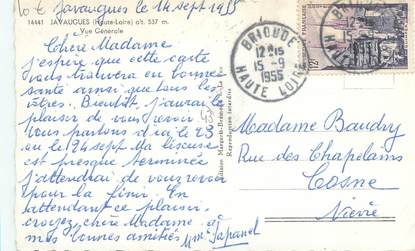 Javaugues le 14 sept 1955
14441 JAVAUGUES (Haute-Loire) alt. 537 m.
Vue Générale
Chère Madame
j'espère que cette carte
vous trouvera en bonne
santé ainsi que tous les
vôtres. Bientôt j'aurai le
plaisir de vous revoir.
Nous partons d'ici le 23
ou le 24 sept. Ma liseuse
est presque terminée
j'attendrai de vous revoir
pour la finir. En
attendant ce plaisir,
croyez, chère Madame, à
mes bonnes amitiés
Reproduction interdite
BRIOUDE
12H15
15-9
1955
HAUTE LOIRE
Madame Baudry
Rue des Chapelains
Cosne
Nièvre